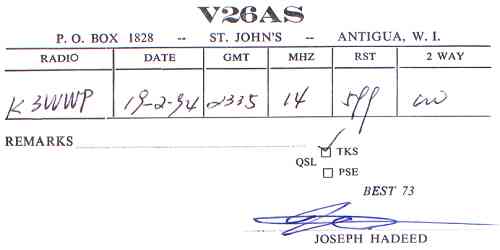 V26AS
P. O. BOX 1828 -- ST. JOHN'S -- ANTIGUA, W. I.
RADIO DATE GMT MHZ RST 2 WAY
K3WWP 19-2-94 2335 14 599 CW
REMARKS
QSL ✓ TKS
☐ PSE
BEST 73
JOSEPH HADEED